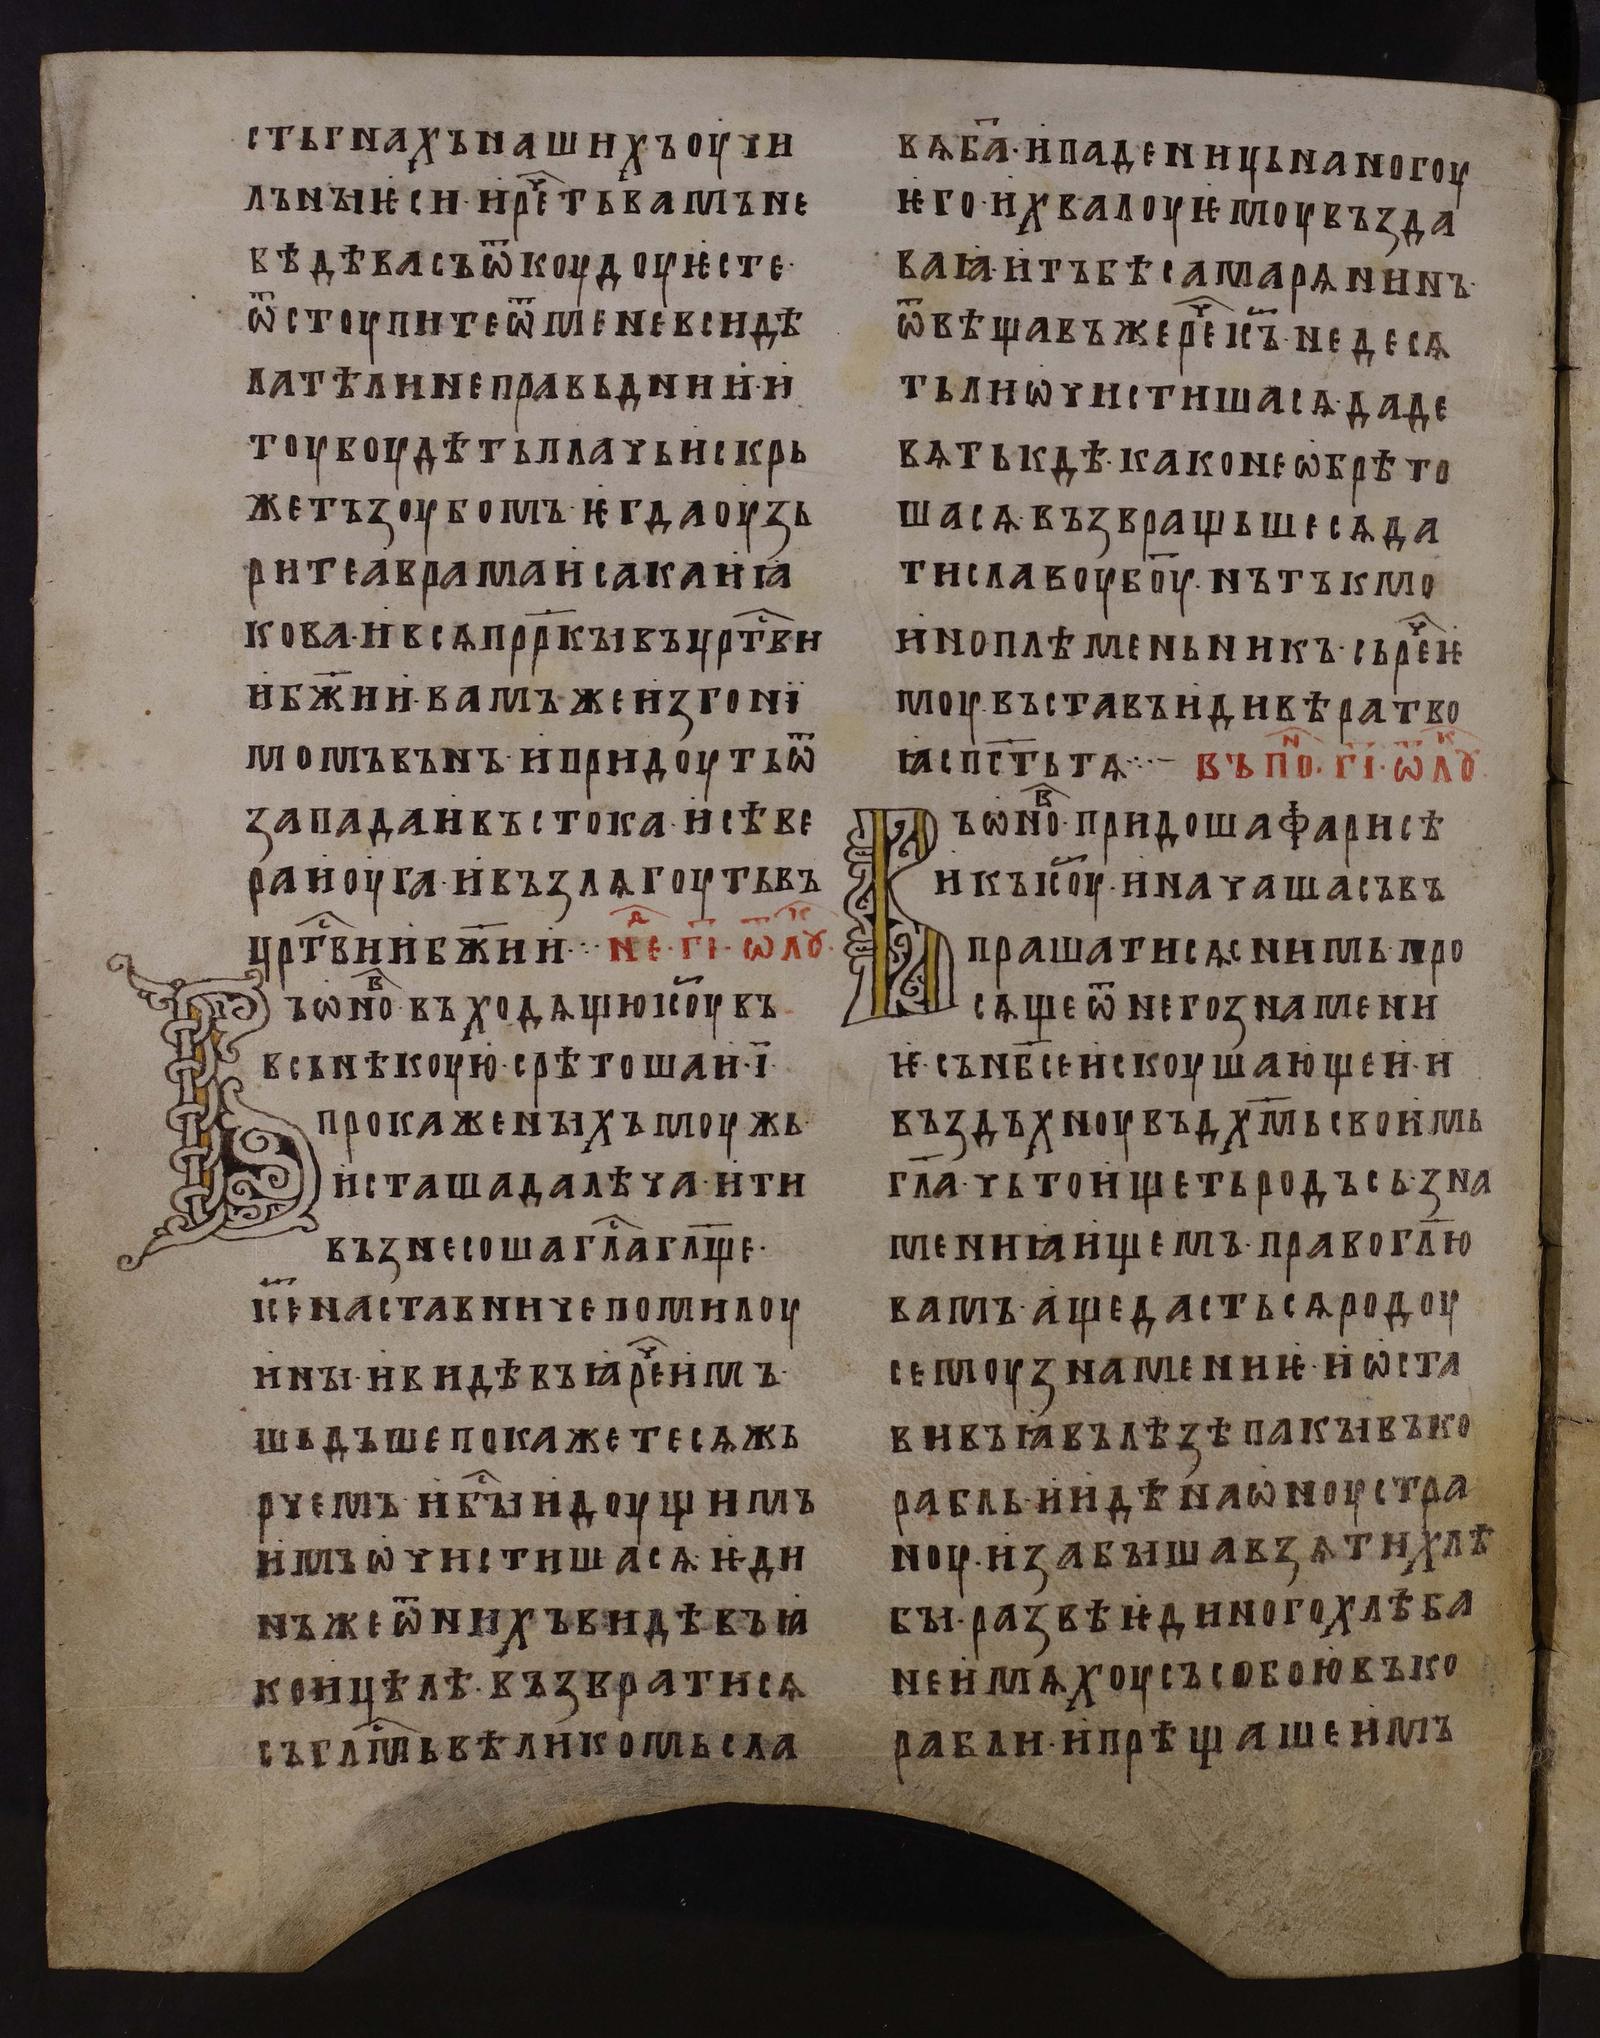 стьгнахънашихъоучи
лънꙑѥси·ирⷱ҇етьвамъне
вѣдѣвасъѿкоудоуѥсте·
ѿстоупитеѿменевсидѣ
лателинеправьднии·и
тоубоудѣтьплачьискрь
жетъзоубомъ·ѥгдаоузь
ритеавраамаисакаиꙗ
кова·ивсѧпрр҃кꙑвъцртⷭ҇ви
ибж҃ии·вамъжеизгонї
момъвънъ·ипридоутьѿ
западаивъстока·исѣве
раиоуга·ивъзлѧгоутьвъ
цртⷭ҇виибж҃ии··· нⷣе·г҃і·ѿлꙋⷦ·
Въѡноⷡ·въходѧщюіс҃оувъ
всьнѣкоую·срѣтошаи·ї·
прокаженꙑхъмоужь·
исташадалѣча·ити
възнесошаглⷭ҇агл҃ще·
іс҃енаставничепомилоу
инꙑ·ивидѣвъꙗрⷱ҇еимъ·
шьдъшепокажетесѧжь
рчемъ·ибⷭ҇ꙑидоущимъ
имъѡчистишасѧ·ѥди
нъжеѿнихъвидѣвъꙗ
коицѣлѣ·възвратисѧ
съглⷭ҇мьвѣликомьсла
вѧб҃а·ипаденицьнаногоу
ѥго·ихвалоуѥмоувъзда
ваꙗ·итъбѣсамарѧнинъ·
ѿвѣщавъжерⷱ҇еіс҃ъ·недесѧ
тьлиѡчистишасѧ·даде
вѧтькдѣ·каконеѡбрѣто
шасѧ·възвращьшесѧда
тиславоубо҃у·нътъкмо
иноплѣменьникъ·сьрⷱ҇еѥ
моу·въставъидивѣратво
ꙗспс҃тьтѧ··· въпоⷩ·г҃і·ѿлꙋⷦ·
Въѡноⷡ·придошафарисѣ
икъіс҃оу·иначашасъвъ
прашатисѧснимь·про
сѧщеѿнегознамени
ѥ·сънб҃сеискоушающеи·и
въздъхноувъдх҃мьсвоимь
гл҃а·чьтоищетьродъсь·зна
мениꙗищемъ·правогл҃ю
вамъ·ащедастьсѧродоу
семоузнамениѥ·иѡста
вивъꙗвълѣзѣпакꙑвъко
рабль·иидѣнаѡноустра
ноу·изабꙑшавзѧтихлѣ
бꙑ·развѣѥдиногохлѣба
неимѧхоусъсобоювъко
рабли·ипрѣщашеимъ